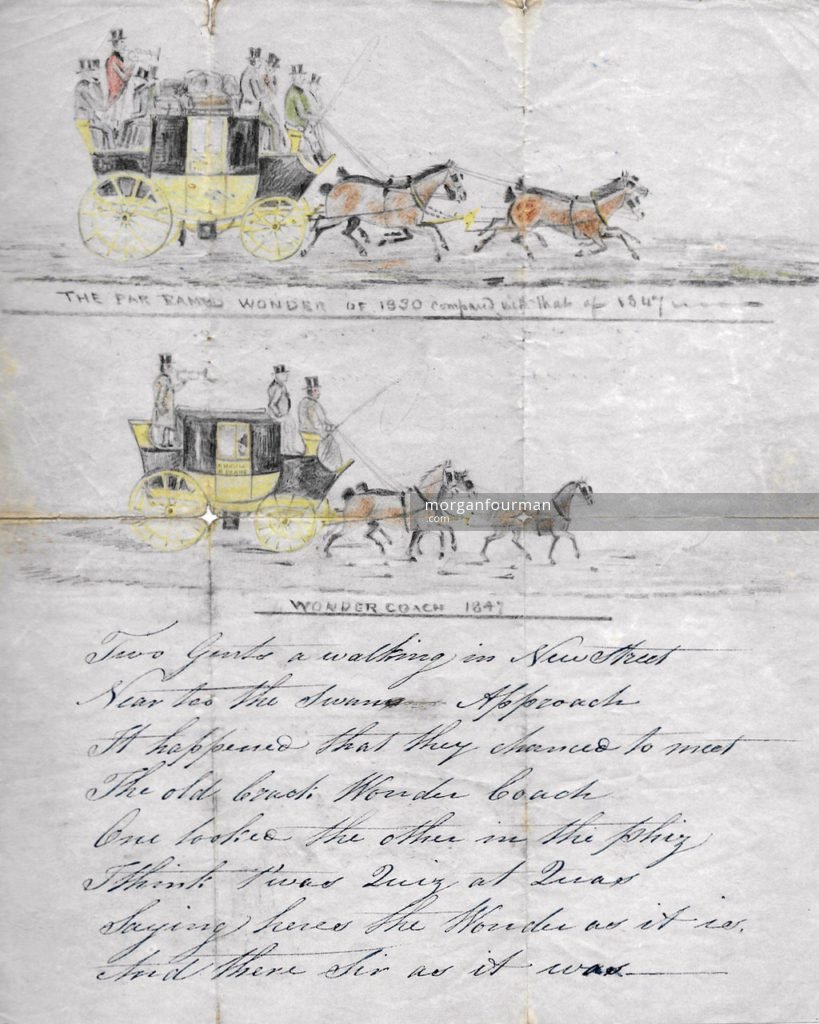 THE FAR FAMED WONDER OF 1830 compared with that of 1847
morganfourman
.com
WONDER COACH 1847
Two Gents a walking in New Street
Near to the Swan Approach
It happened that they chanced to meet
The old Crack Wonder Coach
One looked the other in the phiz
I think t'was Quiz at Quas
Saying heres the Wonder as it is.
And there Sir as it was